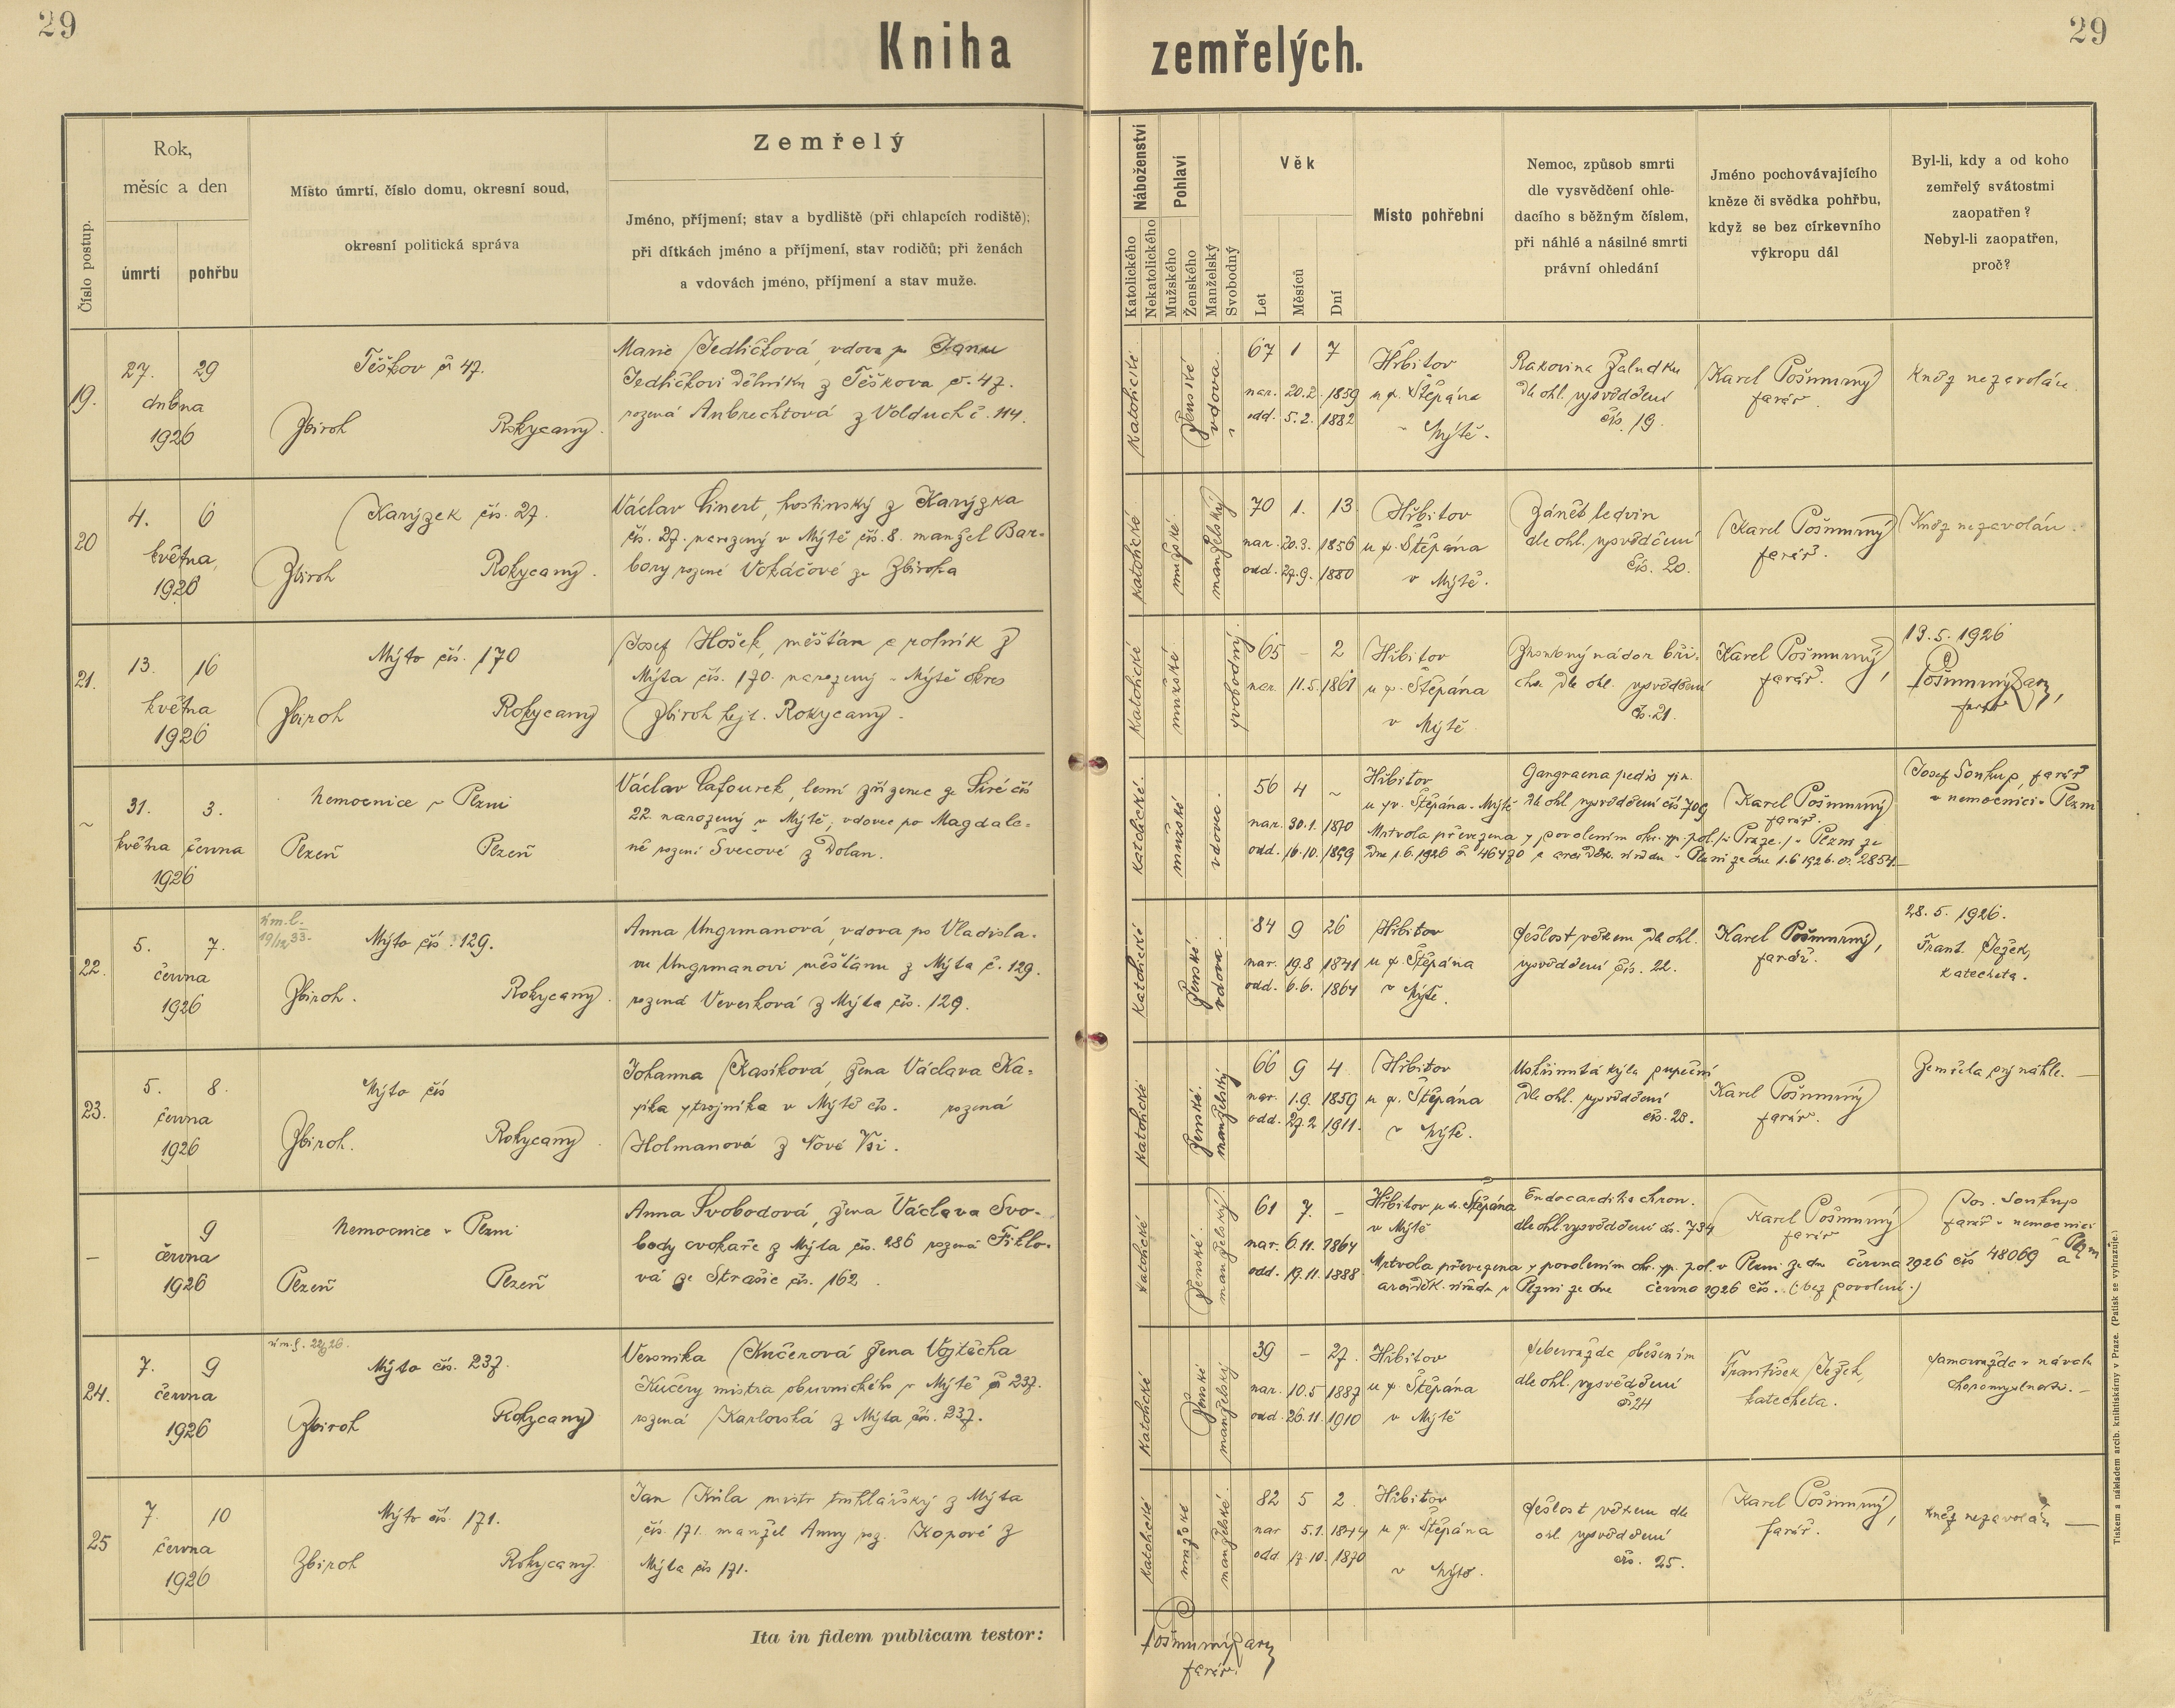 29
Kniha zemřelých.
29
Číslo postup.
Rok,
měsíc a den
úmrtí
pohřbu
Místo úmrtí, číslo domu, okresní soud,
okresní politická správa
Zemřelý
Jméno, příjmení; stav a bydliště (při chlapcích rodiště);
při dítkách jméno a příjmení, stav rodičů; při ženách
a vdovách jméno, příjmení a stav muže.
Náboženství
Katolického
Nekatolického
Pohlaví
Mužského
Ženského
Manželský
Svobodný
Věk
Let
Měsíců
Dní
Místo pohřební
Nemoc, způsob smrti
dle vysvědčení ohle-
dacího s běžným číslem,
při náhlé a násilné smrti
právní ohledání
Jméno pochovávajícího
kněze či svědka pohřbu,
když se bez církevního
výkropu dál
Byl-li, kdy a od koho
zemřelý svátostmi
zaopatřen?
Nebyl-li zaopatřen,
proč?
19.
27. 29
dubna
1926
Těškov č 47.
Zbiroh Rokycany.
Marie Jedličková, vdova po Janu
Jedličkovi dělníku z Těškova č. 47.
rozená Aubrechtová z Volduch č. 114.
katolické
ženské
vdova
67 1 7
nar. 20.2. 1859
odd. 5.2. 1882
Hřbitov
u sv. Štěpána
v Mýtě.
Rakovina žaludku
dle ohl. vysvědčení
čís. 19.
Karel Pošmurný
farář.
Kněz nezavolán.
20
4. 6
května,
1926
Karýzek čís. 27.
Zbiroh Rokycany.
Václav Linert, hostinský z Karýzka
čís. 27. narozený v Mýtě čís. 8. manžel Bar-
bory rozené Vokáčové ze Zbiroha
katolické
mužské
manželský
70 1. 13
nar. 20.3. 1856
odd. 27.9. 1880
Hřbitov
u sv. Štěpána
v Mýtě.
Zánět ledvin
dle ohl. vysvědčení
čís. 20.
Karel Pošmurný
farář.
Kněz nezavolán.
21.
13. 16
května
1926
Mýto čís. 170
Zbiroh Rokycany
Josef Hošek, měšťan a rolník z
Mýta čís. 170. narozený v Mýtě okres
Zbiroh hejt. Rokycany.
katolické
mužské
svobodný.
65 – 2
nar. 11.5. 1861
Hřbitov
u sv. Štěpána
v Mýtě
Zhoubný nádor bři-
cha dle ohl. vysvědčení
čís. 21.
Karel Pošmurný,
farář.
13.5. 1926
farář
~
31. 3.
května června
1926
Nemocnice v Plzni
Plzeň Plzeň
Václav Lafourek, lesní zřízenec ze Siré čís
22 narozený v Mýtě, vdovec po Magdale-
ně rozené Švecové z Dolan.
katolické.
mužské
vdovec.
56 4 ~
nar. 30.1. 1870
odd. 16.10. 1899
Hřbitov
u sv. Štěpána v Mýtě
Gangraena pedis sin.
dle ohl. vysvědčení čís 709
Karel Pošmurný
farář.
Mrtvola převezena s povolením okr. sp. pol. v Plzni ze
dne 1.6.1926 č. 46430 a arciděk. úřadu v Plzni ze dne 1.6 1926. č. 2854.
Josef Soukup, farář
v nemocnici v Plzni
22.
5. 7.
června
1926
úm. l.
19/12 33.
Mýto čís. 129.
Zbiroh. Rokycany.
Anna Ungrmanová, vdova po Vladisla-
vu Ungrmanovi měšťanu z Mýta č. 129.
rozená Veverková z Mýta čís. 129.
katolické
ženské.
vdova.
84 9 26
nar. 19.8 1841
odd. 6.6. 1864
Hřbitov
u sv. Štěpána
v Mýtě.
Sešlost věkem dle ohl.
vysvědčení čís. 22.
Karel Pošmurný,
farář.
28.5. 1926.
Frant. Ježek,
katecheta.
23.
5. 8.
června
1926
Mýto čís
Zbiroh. Rokycany.
Johanna Kasíková, žena Václava Ka-
síka strojníka v Mýtě čís. rozená
Holmanová z Nové Vsi.
katolické
ženské.
manželský
66 9 4
nar. 1.9. 1859
odd. 27.2 1911.
Hřbitov
u sv. Štěpána
v Mýtě.
Uskřinutá kýla pupeční
dle ohl. vysvědčení
čís. 23.
Karel Pošmurný
farář.
Zemřela prý náhle. —
–
9
června
1926
Nemocnice v Plzni
Plzeň Plzeň
Anna Svobodová, žena Václava Svo-
body cvokaře z Mýta čís. 286 rozená Fiklo-
vá ze Strašic čís. 162.
katolické
ženské.
manželský
61 7. –
nar. 6.11. 1864
odd. 19.11. 1888.
Hřbitov u sv. Štěpána
v Mýtě
Endocarditis chron.
dle ohl. vysvědčení čís. 734
Karel Pošmurný
farář
Mrtvola převezena s povolením okr. sp. pol. v Plzni ze dne června 1926 čís 48069 a
arciděk. úřadu v Plzni ze dne června 1926 čís. (bez povolení.)
Jos. Soukup
farář v nemocnici
v Plzni
24.
7. 9
června
1926
Mýto čís. 237.
Zbiroh Rokycany
Veronika Kučerová žena Vojtěcha
Kučery mistra obuvnického v Mýtě č 237.
rozená Karlovská z Mýta čís. 237.
katolické
ženské
manželský
39 – 27.
nar. 10.5 1887
odd. 26.11. 1910
Hřbitov
u sv. Štěpána
v Mýtě
Sebevražda oběšením
dle ohl. vysvědčení
č 24
František Ježek,
katecheta.
Samovražda v návalu
choromyslnosti. –
25
7. 10
června
1926
Mýto čís. 171.
Zbiroh Rokycany.
Jan Kůla mistr truhlářský z Mýta
čís. 171. manžel Anny roz. Kopové z
Mýta čís 171.
katolické
mužské
manželské.
82 5 2
nar 5.1. 1844
odd 17.10. 1870
Hřbitov
u sv. Štěpána
v Mýtě.
Sešlost věkem dle
ohl vysvědčení
čís. 25.
Karel Pošmurný,
farář.
Kněz nezavolán —
Ita in fidem publicam testor:
farář.
Tiskem a nákladem arcib. knihtiskárny v Praze. (Patisk se vyhrazuje.)